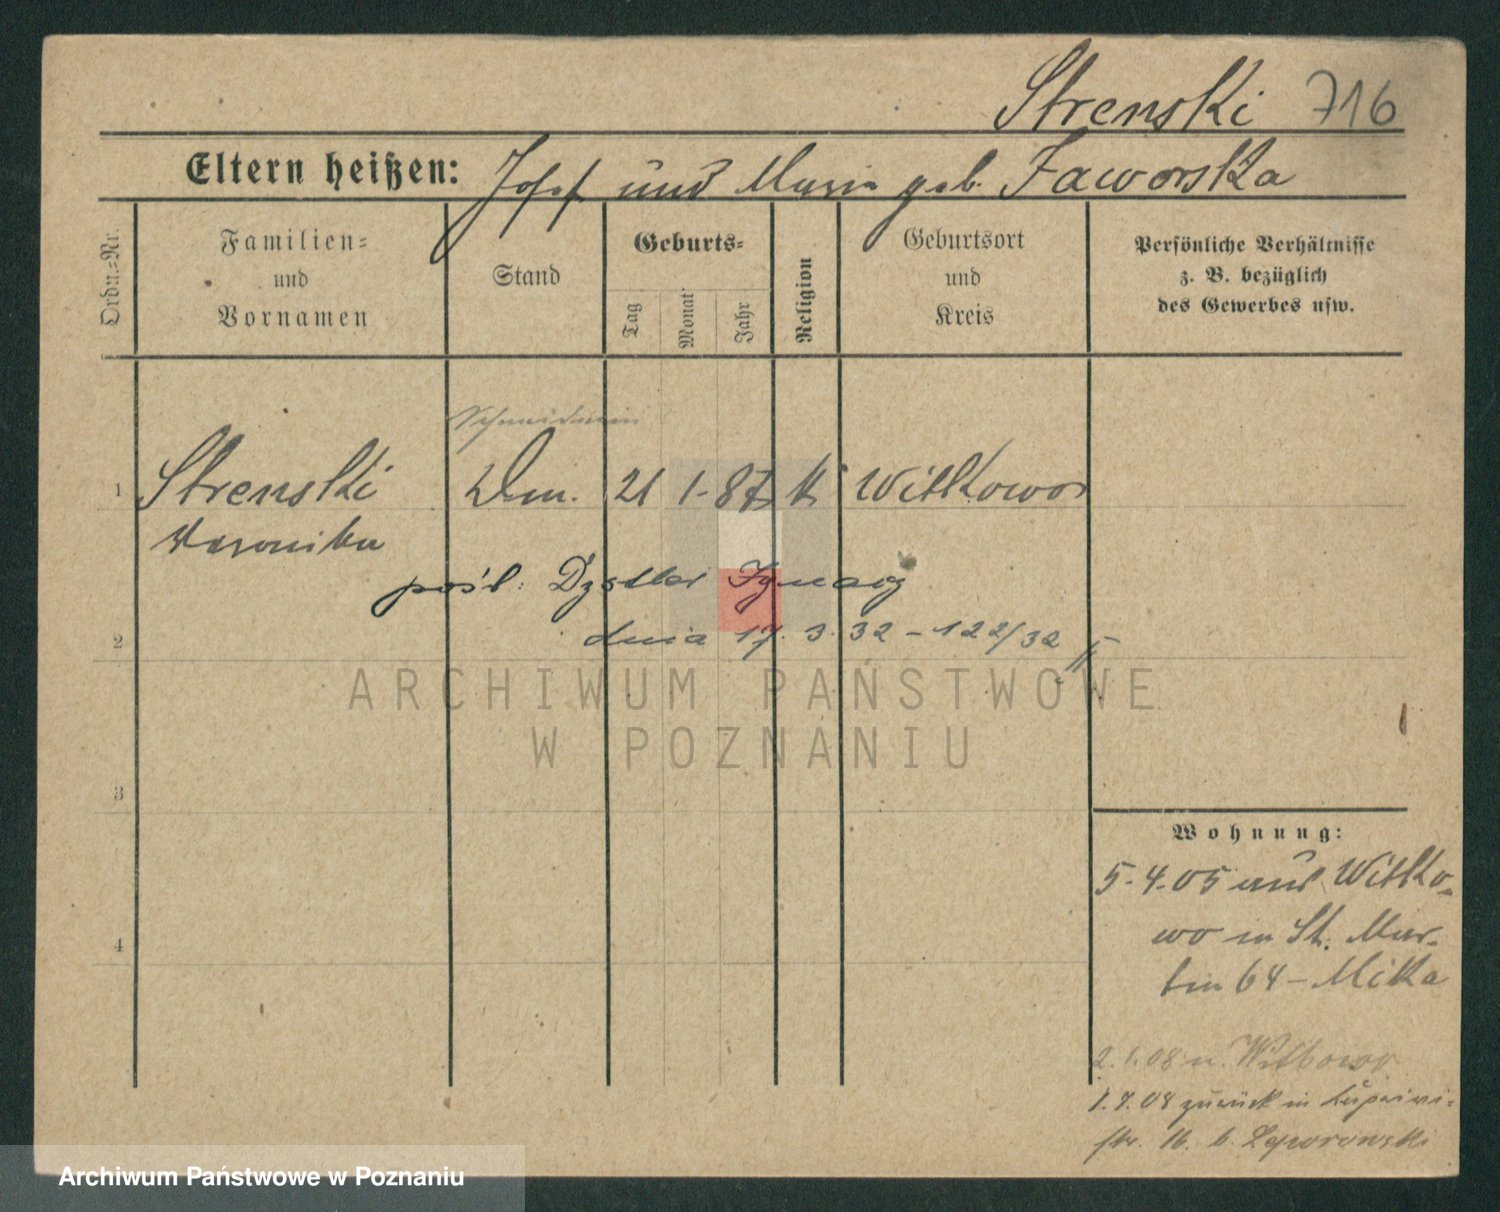 Strenski 716
Eltern heißen: Josef und Maria geb. Jaworska
Ordn.-Nr.
Familien-
und
Vornamen
Stand
Geburts-
Tag
Monat
Jahr
Religion
Geburtsort
und
Kreis
Persönliche Verhältnisse
z. B. bezüglich
des Gewerbes usw.
Schneiderin
1 Strenski 21 1. 87 k Witkowo
Veronika
pośl: Ignacy
2
dnia 17. 3. 32 - 122/32
ARCHIWUM PAŃSTWOWE
W POZNANIU
3
Wohnung:
5. 4. 05 aus Witko-
wo in St. Mar-
4
tin 64 - Mika
2. 1. 08 n. Witkowo
1. 7. 08 zurück in
str. 16. b.
Archiwum Państwowe w Poznaniu